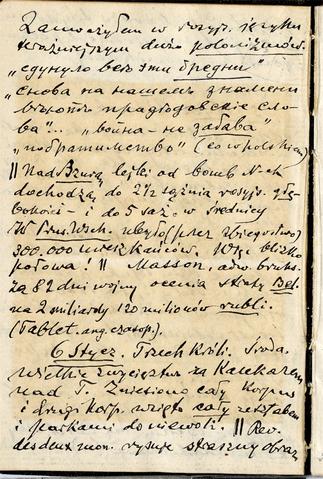 Zauważyłem w rosyjs. języku
dużo polonizmów.
„сдунуло все эти бредни"
„снова на нашем знамени
прадедовские сло-
ва"... „война – не забава"
„побратимство" (co w polskim)
|| Nad Bzurą lejki od bomb N-ch
dochodzą do 2 1/2 sążnia rosyjs. głę-
bokości – i do 5 saż. w średnicy
W Prus. Wsch. ubyło (przez zbiegostwo)
300.000 mieszkańców. Więc blizko
połowa! || Masson, adw. bruks.
za 82 dni wojny ocenia straty Bel.
na 2 miliardy 120 milionów rubli.
(Tablet. ang. czasop.).
6 Stycz. Trzech Króli. Środa.
Wielkie zwycięstwo za Kaukazem
nad T. Zniesiono cały Korpus
i drugi Korp. wzięto cały ze sztabem
i do niewoli. || Rev.
des deux mon. rysuje straszny obraz